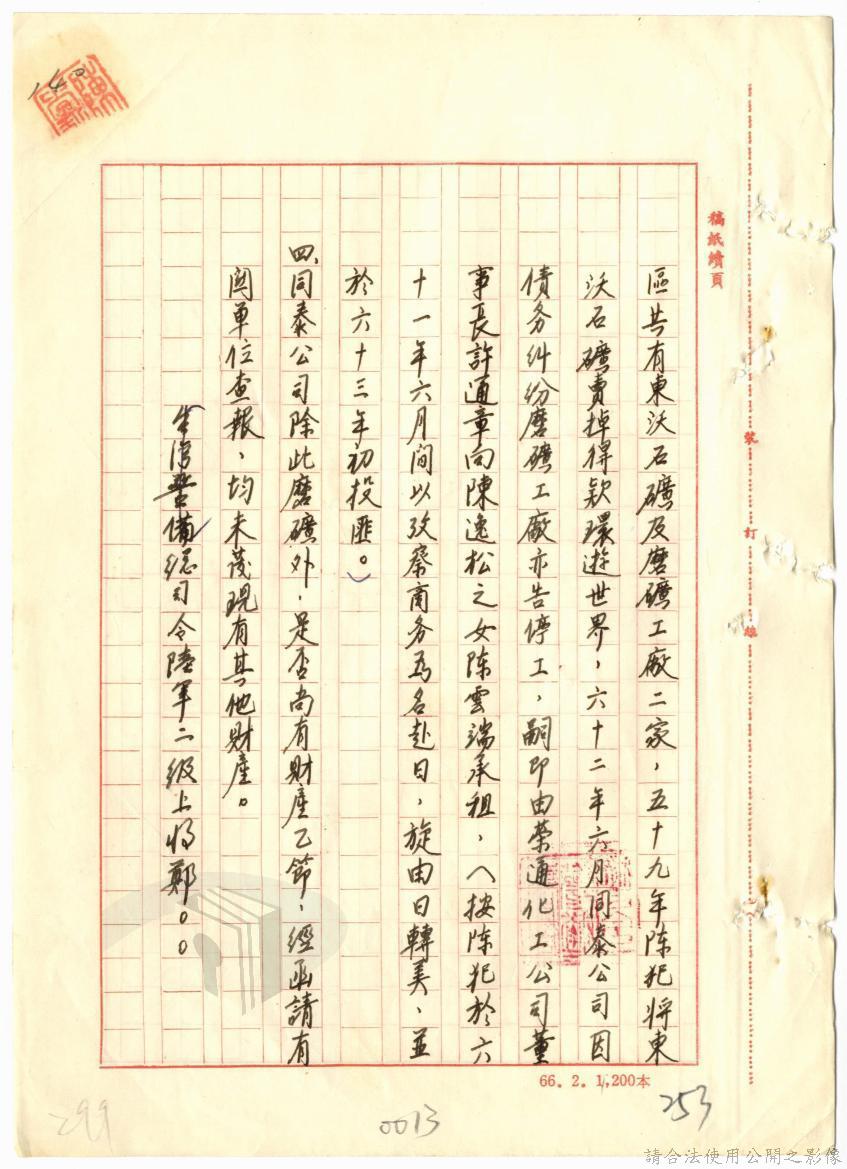 稿紙續頁
區共有東沃石礦及磨礦工廠二家，五十九年陈犯將東
沃石礦賣掉得款環遊世界，六十二年六月同泰公司因
债务纠纷磨礦工廠亦告停工，嗣即由榮通化工公司董
事長許通章向陳逸松之女陈雲端承租，（按陈犯於六
十一年六月間以攷察商务為名赴日，旋由日轉美，並
於六十三年初投匪。）
四、同泰公司除此磨礦外，是否尚有財產乙節，經函請有
関單位查報，均未發現有其他財產。
警備総司令陸軍二级上将鄭。。
裝
訂
線
66. 2. 1,200本
253
0013
299
140
請合法使用公開之影像